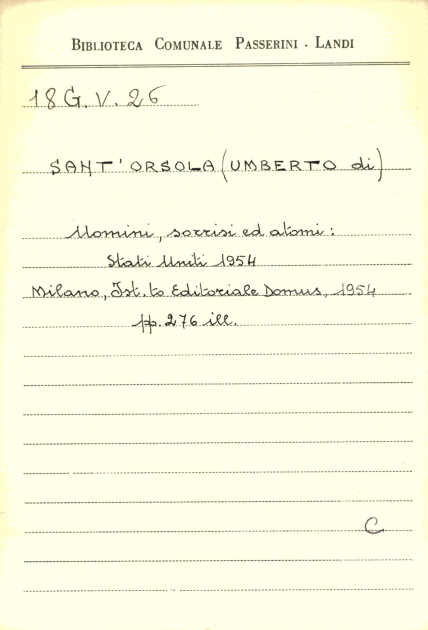 BIBLIOTECA COMUNALE PASSERINI - LANDI
18 G. V. 26
SANT'ORSOLA (UMBERTO di)
Uomini, sorrisi ed atomi:
Stati Uniti 1954
Milano, Ist.to Editoriale Domus, 1954
pp. 276 ill.
C